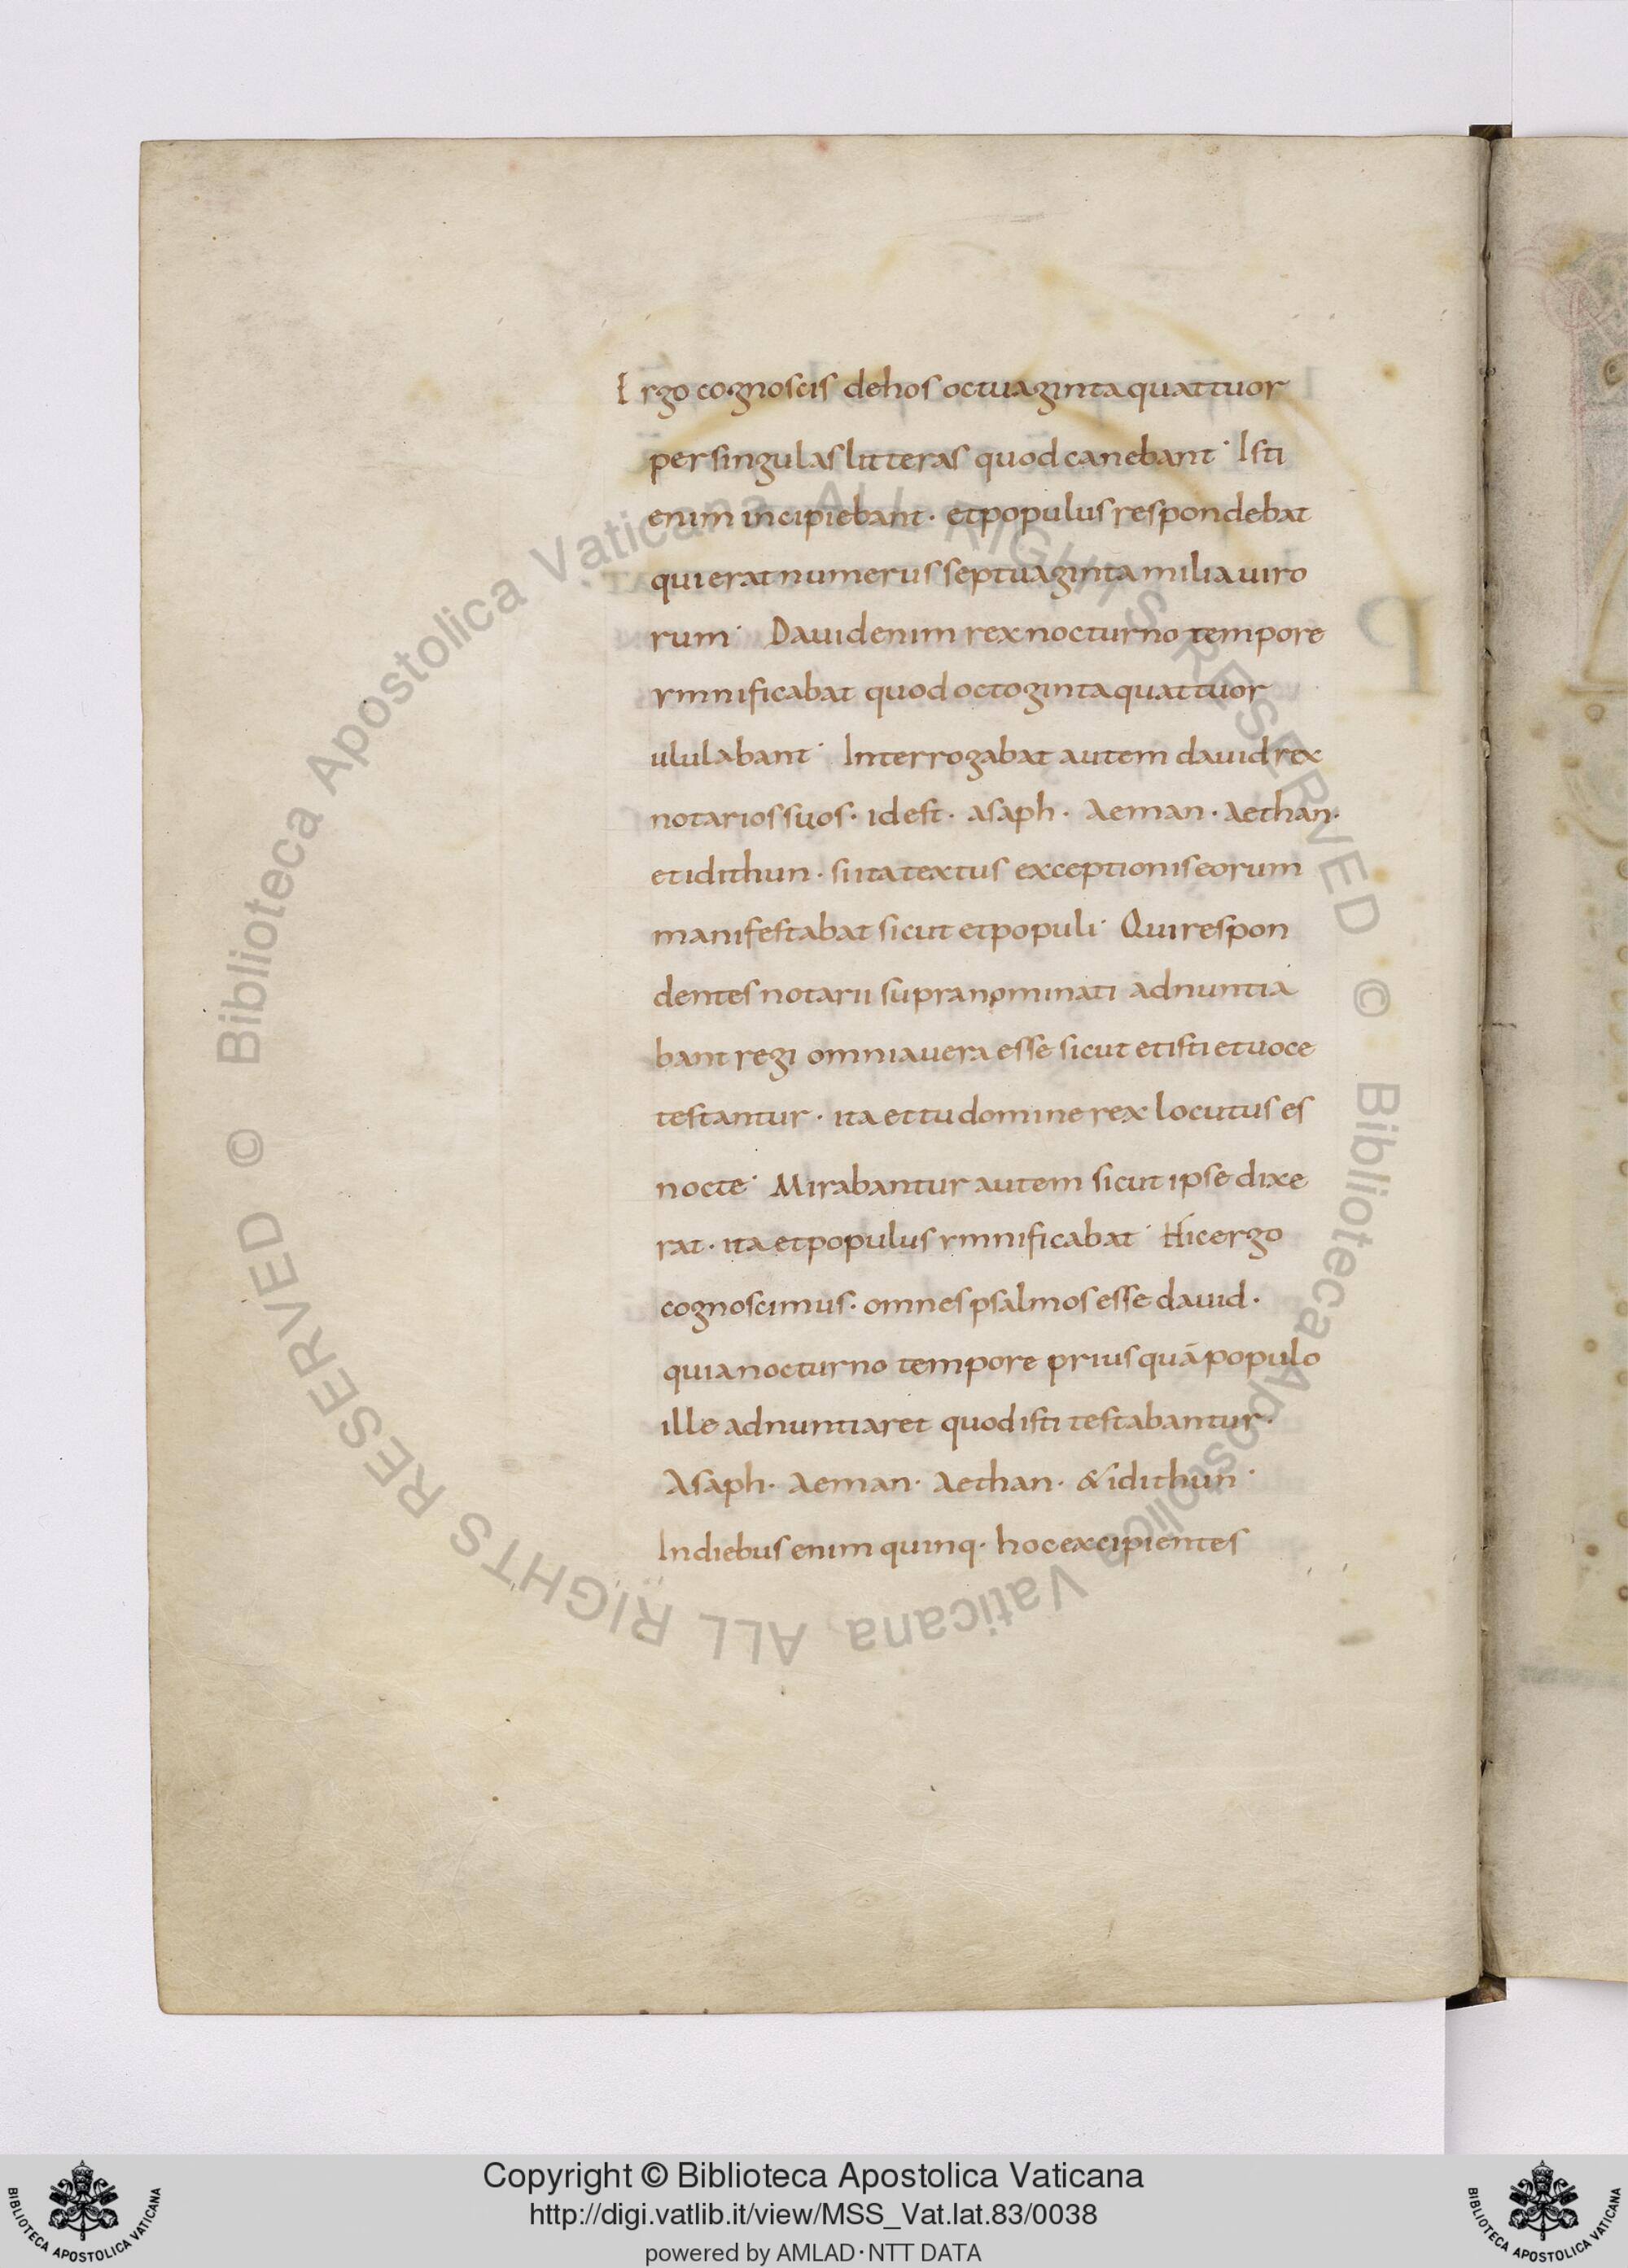 Ergo cognoscis de hos octuaginta quattuor
per singulas litteras quod canebant· Isti
enim incipiebant· et populus respondebat
qui erat numerus septuaginta milia uiro
rum· Dauid enim rex nocturno tempore
rmnificabat quod octoginta quattuor
ululabant· Interrogabat autem dauid rex
notarios suos· id est· asaph· Aeman· Aethan·
et idithun· si ita textus exceptionis eorum
manifestabat sicut et populi· Qui respon
dentes notarii supra nominati adnuntia
bant regi omnia uera esse sicut et isti et uoce
testantur· ita et tu domine rex locutus es
nocte· Mirabantur autem sicut ipse dixe
rat· ita et populus rmnificabat· Hic ergo
cognoscimus· omnes psalmos esse dauid·
quia nocturno tempore prius quā populo
ille adnuntiaret quod isti testabantur·
Asaph· Aeman· Aethan· & idithun·
In diebus enim quinq· hoc excipientes
© Biblioteca Apostolica Vaticana ALL RIGHTS RESERVED
© Biblioteca Apostolica Vaticana ALL RIGHTS RESERVED
Copyright © Biblioteca Apostolica Vaticana
http://digi.vatlib.it/view/MSS_Vat.lat.83/0038
powered by AMLAD·NTT DATA
BIBLIOTECA APOSTOLICA VATICANA
BIBLIOTECA APOSTOLICA VATICANA